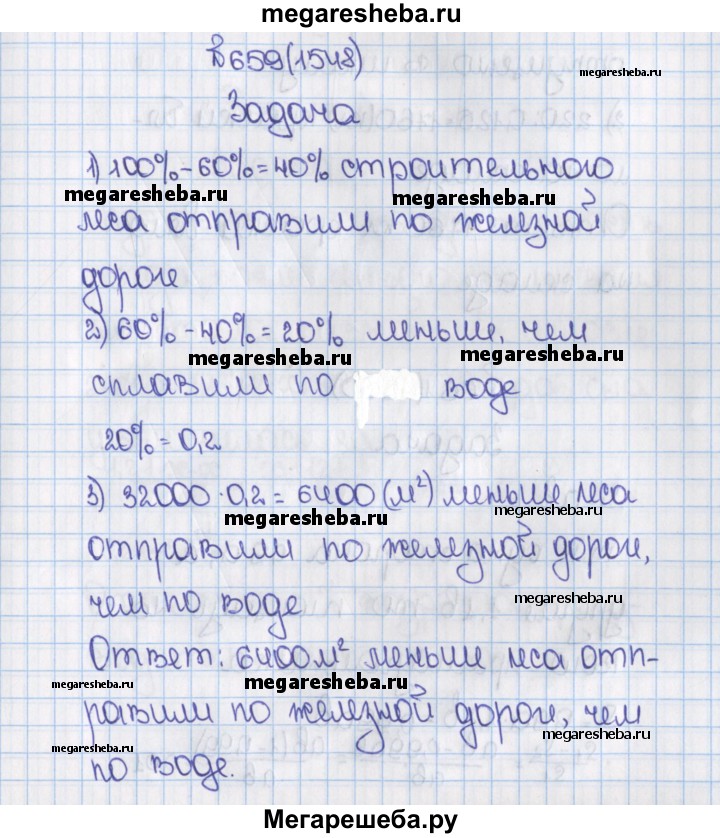 megaresheba.ru
№659(1548)
megaresheba.ru
Задача
1) 100%-60%=40% строительного
megaresheba.ru megaresheba.ru
леса отправили по железной
дороге
2) 60%-40%=20% меньше, чем
megaresheba.ru megaresheba.ru
сплавили по воде
20%=0,2
3) 32000·0,2=6400(м²) меньше леса
megaresheba.ru megaresheba.ru
отправили по железной дороги,
чем по воде
megaresheba.ru
Ответ: 6400м² меньше леса отп-
megaresheba.ru megaresheba.ru megaresheba.ru
равили по железной дороги, чем
megaresheba.ru megaresheba.ru
по воде.
Мегарешеба.ру